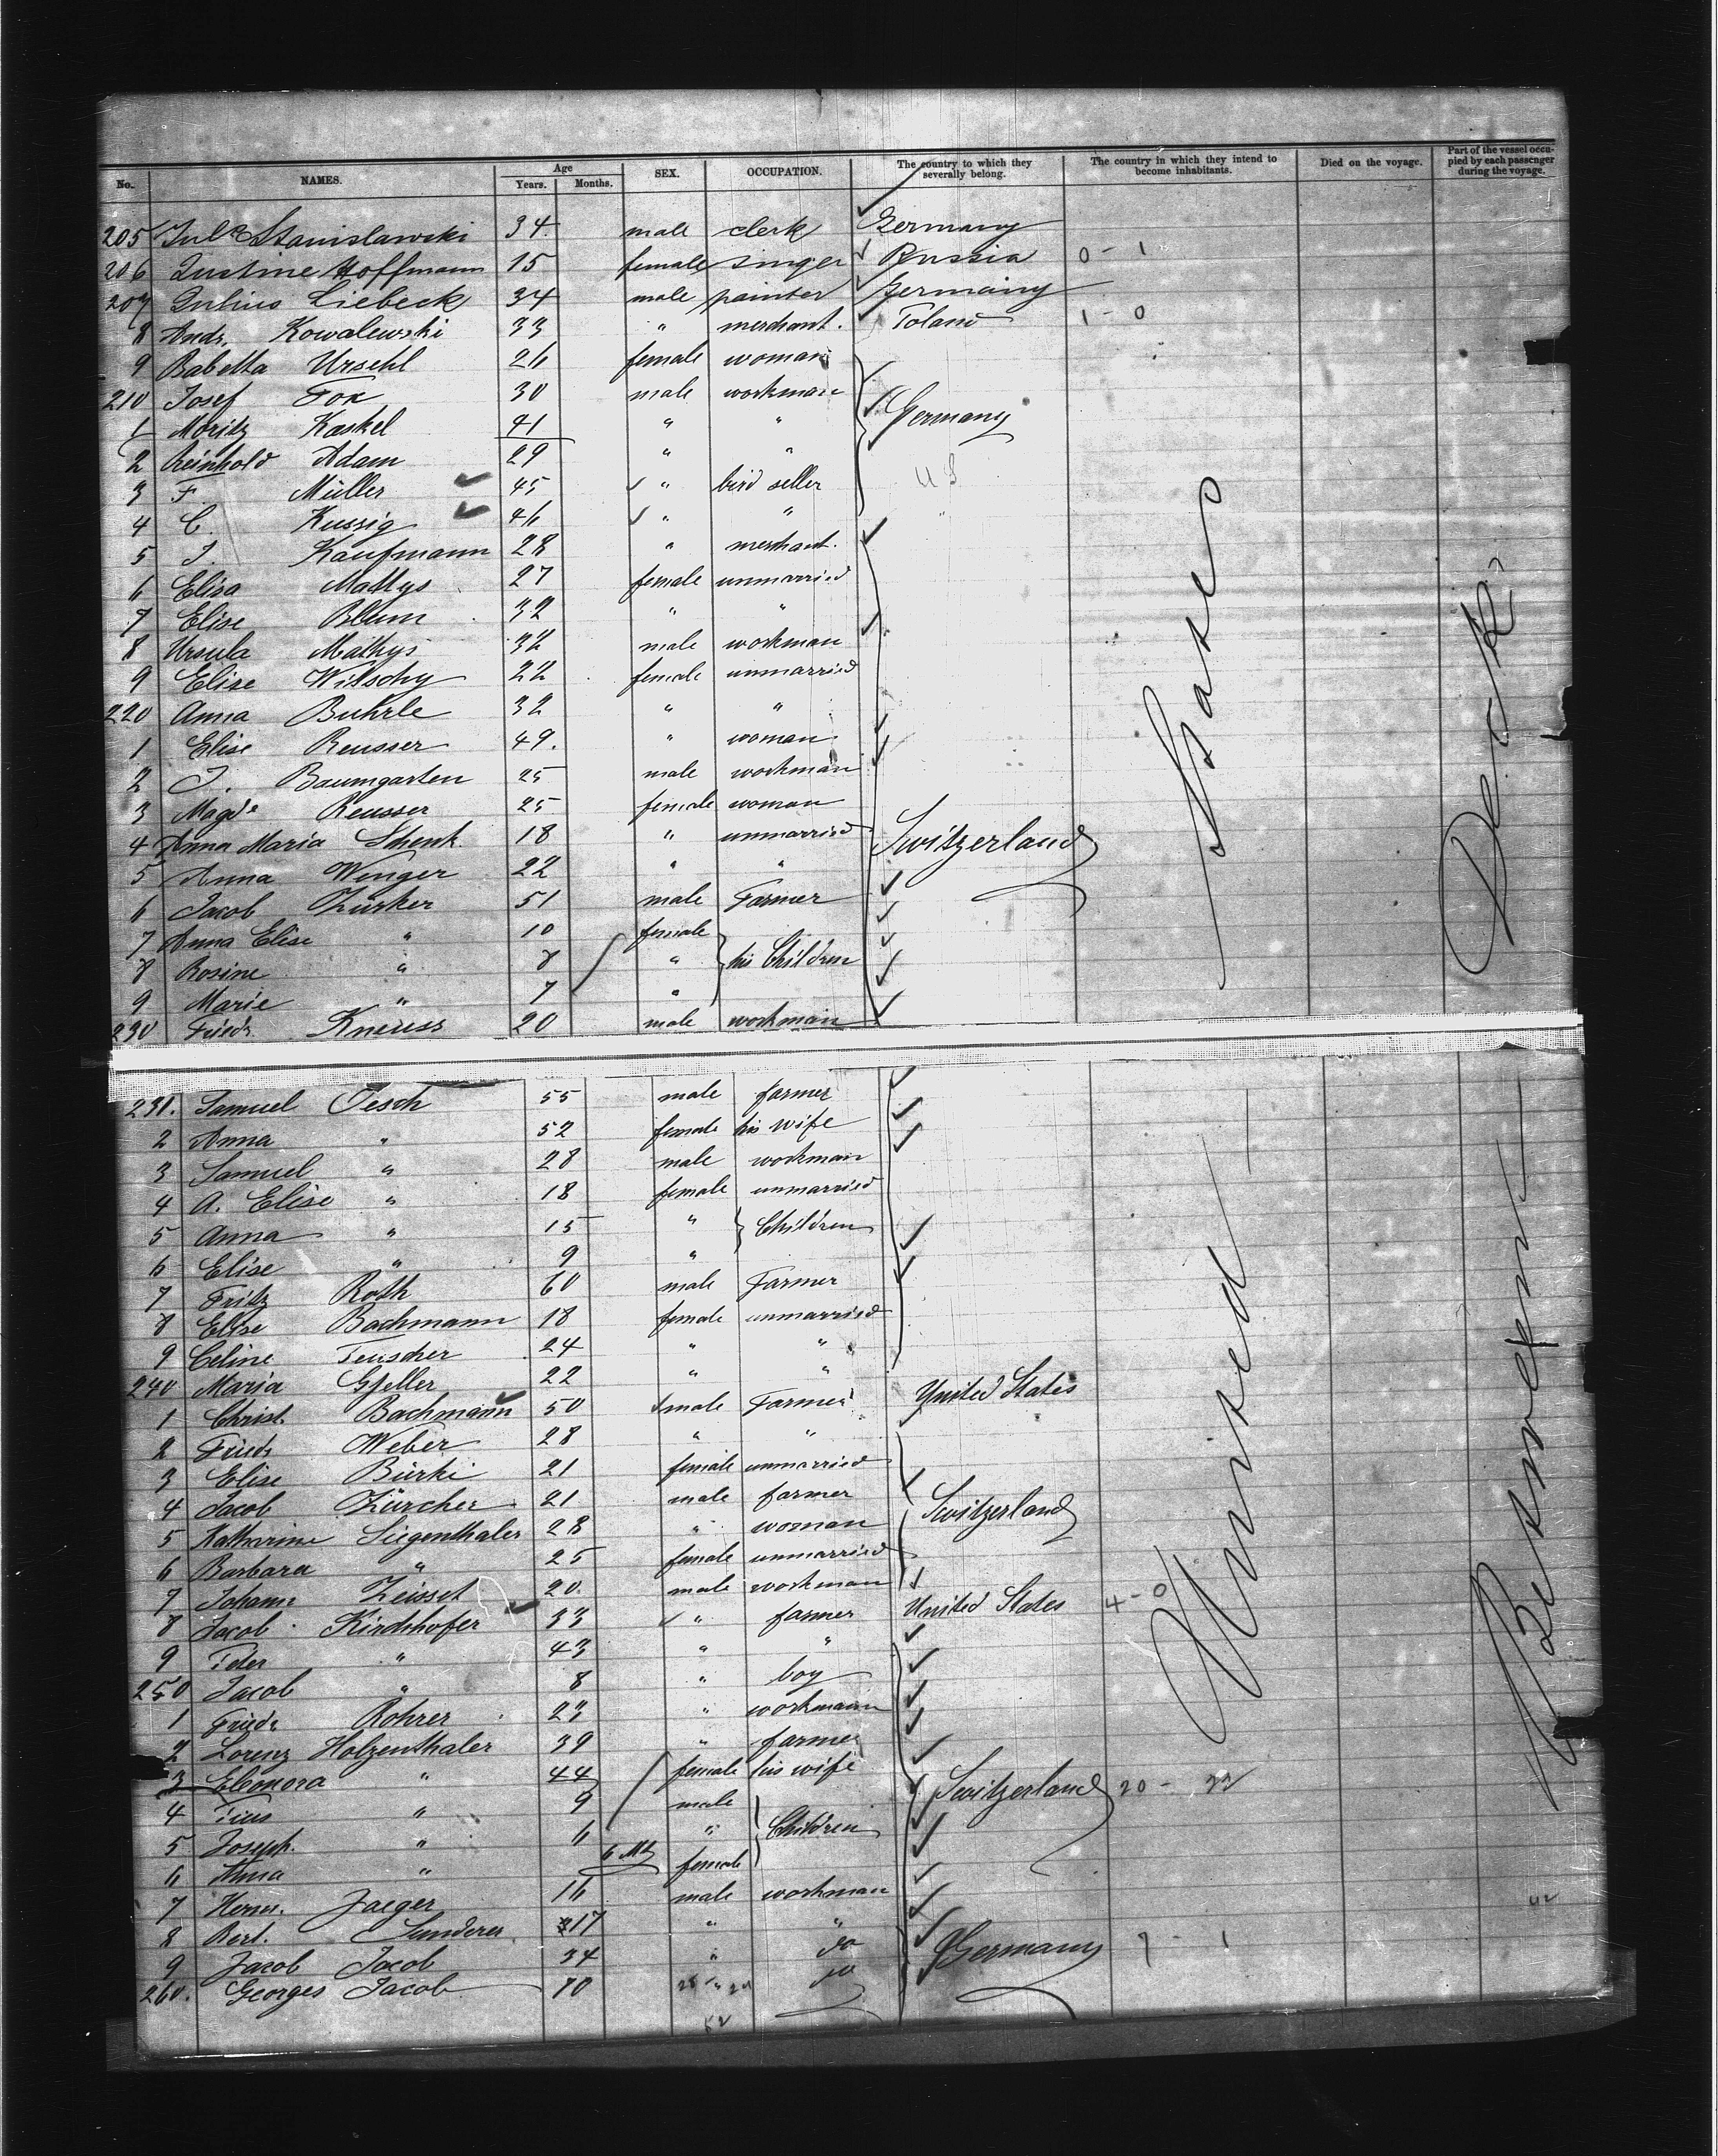 No. NAMES. Age Years. Months. SEX. OCCUPATION. The country to which they severally belong. The country in which they intend to become inhabitants. Died on the voyage. Part of the vessel occupied by each passenger during the voyage.
205 Jul. Stanislawski 34 male clerk Germany
206 Justine Hoffmann 15 female singer Russia 0 - 1
207 Julius Liebeck 34 male painter Germany
8 Andr. Kowalewski 33 " merchant. Poland 1 - 0
9 Babetta Urschl 26 female woman
210 Josef Fox 30 male workman
1 Moritz Kaskel 41 " " Germany
2 Reinhold Adam 29 " "
3 F. Müller 45 " bird seller U S
4 C. Kussig 46 " " "
5 J. Kaufmann 28 " merchant.
6 Elisa Mathys 27 female unmarried
7 Elise Blum 32 " "
8 Ursula Mathys 32 male workman
9 Elise Witschy 22 female unmarried
220 Anna Buhrle 32 " "
1 Elise Reusser 49. " woman
2 J. Baumgarten 25 male workman
3 Magd. Reusser 25 female woman
4 Anna Maria Schenk 18 " unmarried Switzerland
5 Anna Wenger 22 " "
6 Jacob Zürker 51 male Farmer
7 Anna Elise " 10 female
8 Rosine " 8 " his Children
9 Marie " 7 "
230 Friedr. Kneuss 20 male workman
231. Samuel Oesch 55 male farmer
2 Anna " 52 female his wife
3 Samuel " 28 male workman
4 A. Elise " 18 female unmarried
5 Anna " 15 " Children
6 Elise " 9 "
7 Fritz Roth 60 male Farmer
8 Elise Bachmann 18 female unmarried
9 Celine Teuscher 24 " "
240 Maria Gfeller 22 " "
1 Christ. Bachmann 50 male Farmer United States
2 Friedr Weber 28 " "
3 Elise Bürki 21 female unmarried
4 Jacob Zürcher 21 male farmer
5 Katharine Siegenthaler 28 " woman Switzerland
6 Barbara " 25 female unmarried
7 Johann Zeisset 20 male workman
8 Jacob Kirchhofer 33 " farmer United States 4 - 0
9 Peter " 43 " "
250 Jacob " 8 " boy
1 Friedr Rohrer 23 " workmann
2 Lorenz Holzenthaler 39 " farmer
3 Eleonora " 44 female his wife
4 Pius " 9 male Switzerland 20 - 22
5 Joseph. " 6 " Children
6 Anna " 6 Mth female
7 Herm. Jaeger 16 male workman
8 Bert. Sunderer 17 " "
9 Jacob Jacob 34 " do Germany 7 - 1
260. Georges Jacob 10 " do
52
United States
Betweenk Deck